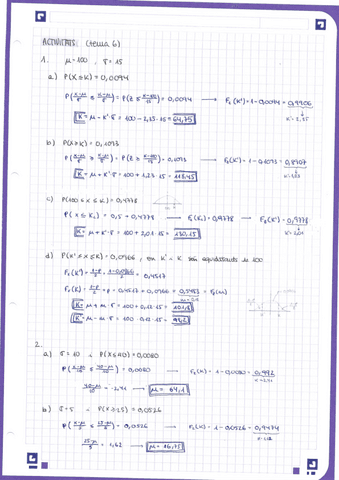 ACTIVITATS: (tema 6)
1. μ=100, σ=15
a) P(X≤K) = 0,0094
P(X-μ/σ ≤ K-μ/σ) = P(Z ≤ K-100/15) = 0,0094 → F₂(K') = 1-0,0094 = 0,9906
K = μ - K'·σ = 100 - 2,35·15 = 64,75
K' = 2,35
b) P(X≥K) = 0,1093
P(X-μ/σ ≥ K-μ/σ) = P(Z ≥ K-100/15) = 0,1093 → F₂(K') = 1-0,1093 = 0,8907
K = μ + K'·σ = 100 + 1,23·15 = 118,45
K' = 1,23
c) P(100 ≤ X ≤ K) = 0,4778
P(X ≤ K₁) = 0,5 + 0,4778 → F₂(K₁) = 0,9778 → F₂(K') = 0,9778
K = μ + K'·σ = 100 + 2,01·15 = 130,15
K' = 2,01
d) P(K' ≤ X ≤ K) = 0,0966, on K' i K són equidistants a 100
F₂(K') = 1-P/2 = 1-0,0966/2 = 0,4517
F₂(K) = 1-P/2 + P = 0,4517 + 0,0966 = 0,5483 = F₂(u)
K = μ + u·σ = 100 + 0,12·15 = 101,8
K' = μ - u·σ = 100 - 0,12·15 = 98,2
2.
a) σ = 10 i P(X≤40) = 0,0080
P(X-μ/σ ≤ 40-μ/10) = 0,0080 → F₂(K) = 1-0,0080 = 0,992
K=2,41
40-μ/10 = -2,41 → μ = 64,1
b) σ=5 i P(X≥25) = 0,0526
P(X-μ/σ ≥ 25-μ/5) = 0,0526 → F₂(K) = 1-0,0526 = 0,9474
K=1,62
25-μ/5 = 1,62 → μ = 16,75